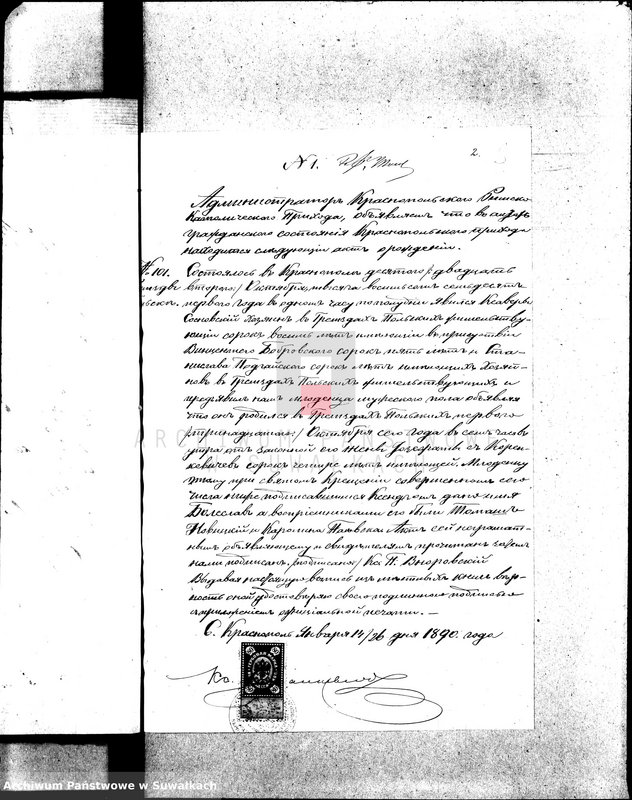 N 1.
2.
Администраторъ Краснопольского Римско
Католического Прихода, объявляетъ что въ актахъ
гражданского состоянія Краснопольского прихода
находится следующій актъ о рожденіи.
№ 101.
Состоялось въ Краснополѣ десятого / двадцать
второго / Октября мѣсяца восемьсотъ семьдесятъ
перваго года въ одномъ часу пополудни явился Ксаверы
Сосновскій Хозяинъ въ Греиздахъ Польскихъ жительству-
ющій сорокъ восемь лѣтъ имѣющій въ присутствіи
Винцентого Бобровского сорокъ пять лѣтъ и Ста-
нислава Подгайского сорокъ лѣтъ имѣющихъ Хозяи-
новъ въ Греиздахъ Польскихъ жительствующихъ и
предъявилъ намъ младенца мужескаго пола объявляя
что онъ родился въ Греиздахъ Польскихъ перваго
/тринадцатаго/ Октября сего года въ семъ часовъ
утра отъ законной его жены Юзефаты съ Корен-
кевичевъ сорокъ четыре лѣтъ имѣющей. Младенцу
этому при святомъ Крещеніи совершенномъ сего
числа ниже подписавшимся Ксендзомъ дано имя
Болеславъ а воспріемниками его были Томашъ
Новицкій и Каролина Актъ сей неграмот-
нымъ объявляющему и свидѣтелямъ прочитанъ
нами подписанъ. /подписано/ Кс. П.
Выдавая настоящую выпись изъ мѣстныхъ книгъ вѣр-
ность оной удостовѣряю своею подписью
съ приложеніемъ официальной печати. —
С. Краснополь Января 14/26 дня 1890 года
Кс.
ARCHIWUM PAŃSTWOWE
Archiwum Państwowe w Suwałkach